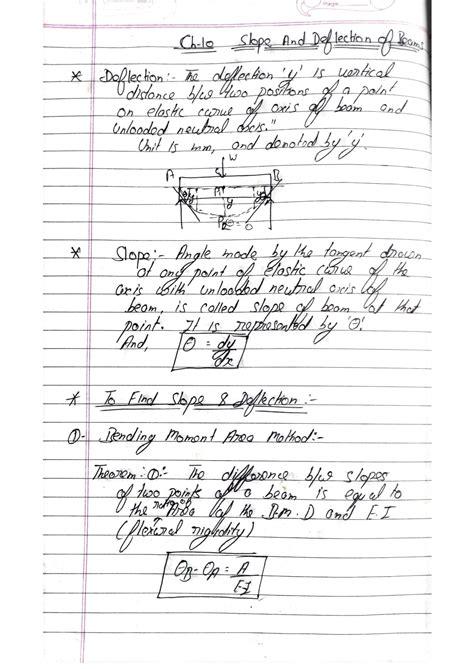 Ch-10 Slope And Deflection of Beams
* Deflection:- The deflection 'y' is vertical
distance b/w two positions of a point
on elastic curve of axis of beam and
unloaded neutral axis."
Unit is mm, and denoted by 'y'.
W
A B
P y
P1 θ=0
* Slope:- Angle made by the tangent drawn
at any point of elastic curve of the
axis with unloaded neutral axis of
beam, is called slope of beam at that
point. It is represented by 'θ'.
And, θ = dy/dx
* To Find Slope & Deflection:-
①- Bending Moment Area Method:-
Theorem:①:- The difference b/w slopes
of two points of a beam is equal to
the ratio of Area of the B.M.D and E.I
(flexural rigidity)
θB-θA = A/E·I